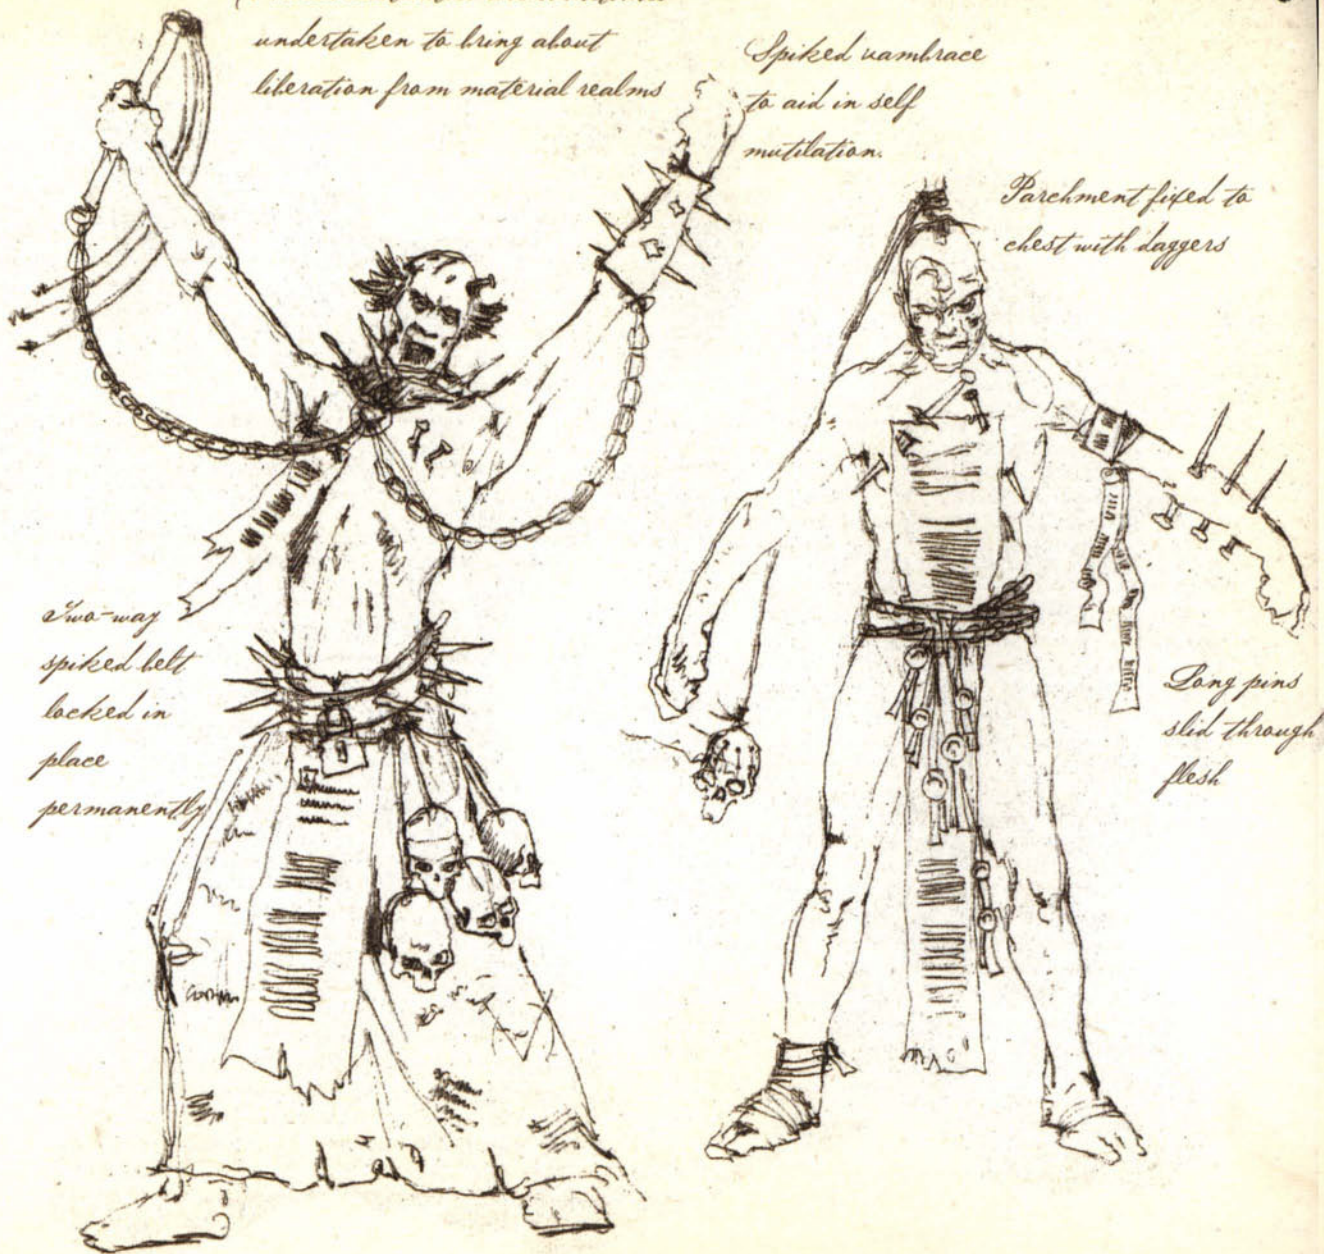 undertaken to bring about
liberation from material realms
Spiked vambrace
to aid in self
mutilation.
Parchment fixed to
chest with daggers
Two-way
spiked belt
locked in
place
permanently
Long pins
slid through
flesh